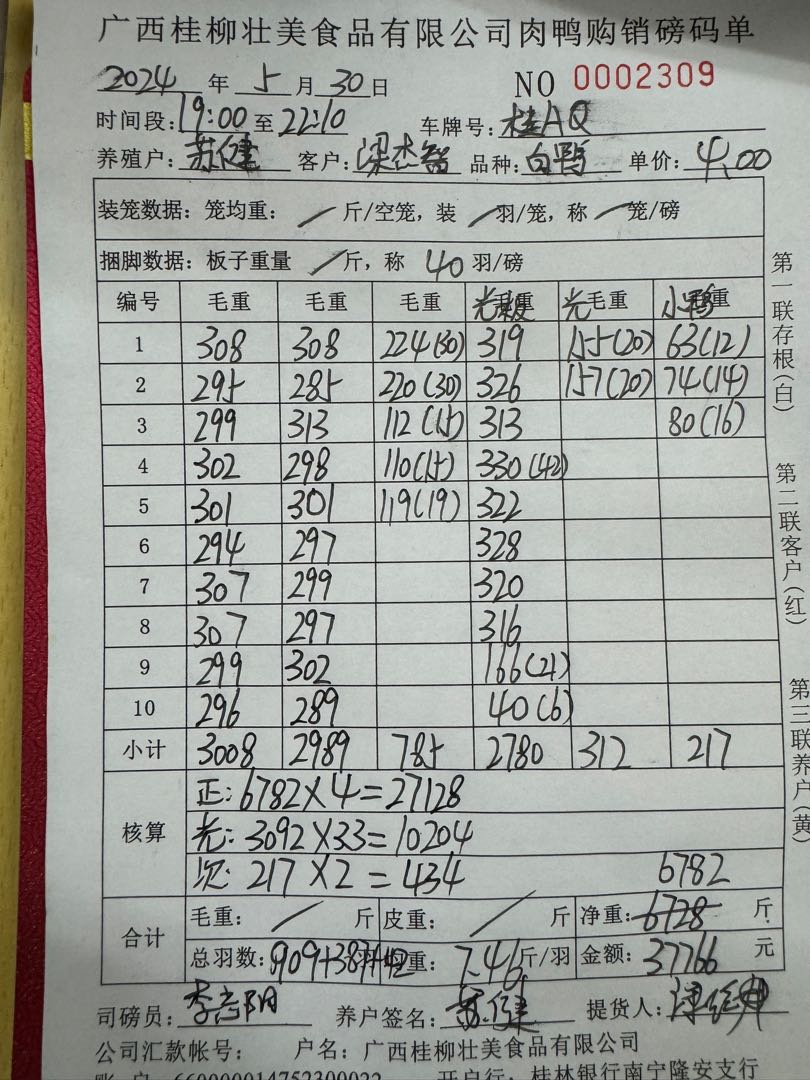 广西桂柳壮美食品有限公司肉鸭购销磅码单
2024 年 5 月 30 日 NO 0002309
时间段: 19:00 至 22:10 车牌号: 桂AQ
养殖户: 苏健 客户: 梁杰智 品种: 白鸭 单价: 4.00
装笼数据: 笼均重: / 斤/空笼, 装 / 羽/笼, 称 / 笼/磅
捆脚数据: 板子重量 / 斤, 称 40 羽/磅
编号 毛重 毛重 毛重 毛重 光 毛重 小鸭
1 308 308 224(30) 319 155(20) 63(12)
2 295 285 220(30) 326 157(20) 74(14)
3 299 313 112(15) 313 80(16)
4 302 298 110(15) 330(42)
5 301 301 119(19) 322
6 294 297 328
7 307 299 320
8 307 297 316
9 299 302 166(21)
10 296 289 40(6)
小计 3008 2989 785 2780 312 217
核算
正: 6782×4=27128
光: 3092×3.3=10204
次: 217×2=434 6782
合计
毛重: / 斤 皮重: / 斤 净重: 6728 斤
总羽数: 909+387+42 均重: 7.46 斤/羽 金额: 37766 元
司磅员: 李志阳 养户签名: 苏健 提货人:
公司汇款帐号: 户名: 广西桂柳壮美食品有限公司
账 户 660000014752300022 开户行: 桂林银行南宁隆安支行
第一联存根(白)
第二联客户(红)
第三联养户(黄)